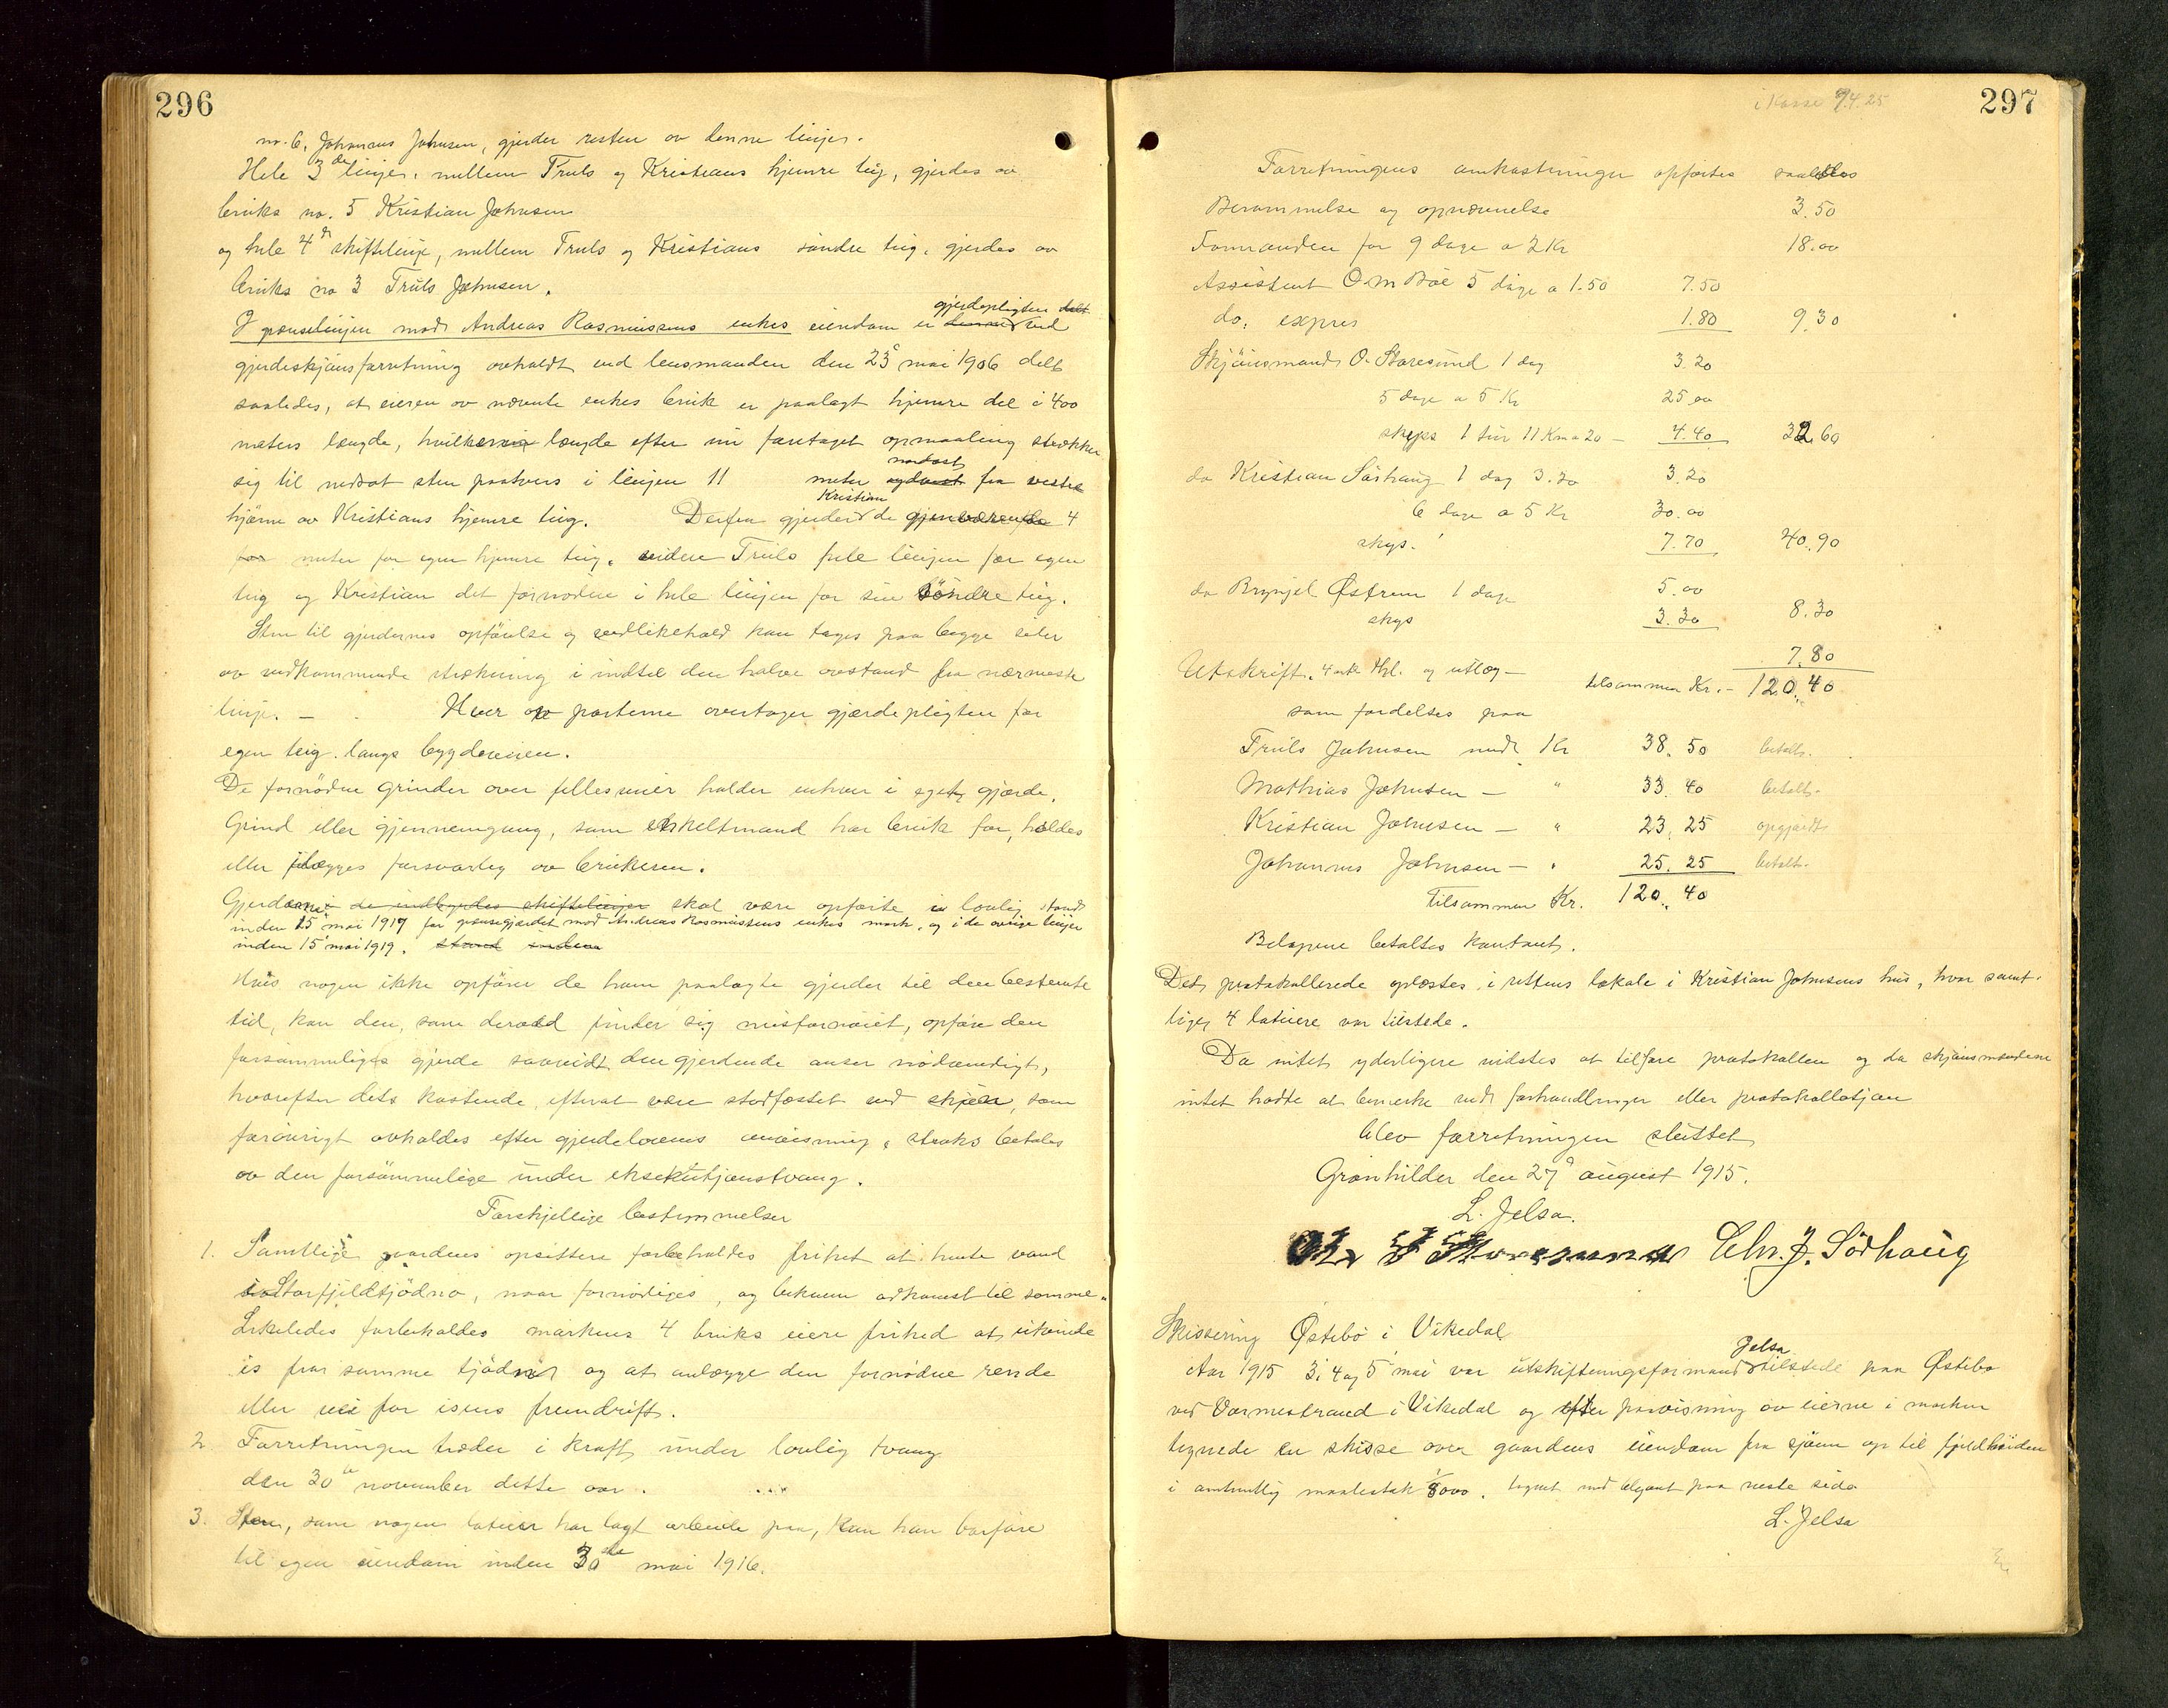 296
no. 6, Johannes Johnsen, gjerder resten av denne linjen.
Hele 3de linjen, mellem Truls og Kristians hjemre teig, gjerdes av
bruks no. 5 Kristian Johnsen
og hele 4de skiftelinje, mellem Truls og Kristians söndre teig, gjerdes av
bruks no 3 Truls Johnsen.
gjerdepligten delt
I grænselinjen mod Andreas Rasmussens enkes eiendom er denne ved
gjerdeskjønsforretning avholdt ved lensmanden den 23de mai 1906 delt
saaledes, at eieren av nævnte enkes bruk er paalagt hjemre del i 400
meters længde, hvilken længde efter nu foretaget opmaaling strækker
nordost
sig til nedsat sten paatvers i linjen 11 meter sydvest fra vestre
Kristian
hjørne av Kristians hjemre teig. Derfra gjerder de gjenværende 4
for meter for egen hjemre teig, videre Truls hele linjen for egen
teig og Kristian det fornødne i hele linjen for sin söndre teig.
Sten til gjerdernes opførelse og vedlikehold kan tages paa begge sider
av vedkommende strækning i indtil den halve avstand fra nærmeste
linje. — Hver av parterne overtager gjærdepligten for
egen teig langs bygdeveien.
De fornødne grinder over fellesveier holder enhver i eget gjærde.
Grind eller gjennemgang, som enkeltmand har bruk for, holdes
eller ilægges forsvarlig av brukeren.
Gjerderne i de indbyrdes skiftelinjer skal være opførte i lovlig stand
inden 15de mai 1917 for grænsegjærdet mod Andreas Rasmussens enkes mark, og i de øvrige linjer
inden 15de mai 1919. stand inden
Hvis nogen ikke opfører de ham paalagte gjerder til den bestemte
tid, kan den, som derved finder sig misfornøiet, opføre den
forsømmeliges gjerde saavidt den gjerdende anser nødvendigt,
hvorefter dets kostende, efterat være stadfæstet ved skjøn, som
forøvrigt avholdes efter gjerdelovens anvisning, straks betales
av den forsømmelige under eksekutjonstvang.
Forskjellige bestemmelser
1. Samtlige gaardens opsittere forbeholdes frihet at hente vand
i Storfjeldtjödno, naar fornødiges, og bekvem adkomst til samme.
Likeledes forbeholdes markens 4 bruks eiere frihed at utvinde
is fra samme tjödn og at anlægge den fornødne rende
eller vei for isens fremdrift.
2. Forretningen træder i kraft under lovlig tvang
den 30te november dette aar.
3. Sten, som nogen lodeier har lagt arbeide paa, kan han borføre
til egen eiendom inden 30te mai 1916.
297
i Kasse 7/4.25
Forretningens omkostninger opførtes saaledes
Berammelse og opnævnelse 3.50
Formanden for 9 dage a 2 Kr 18.00
Assistent O M Bøe 5 dage a 1.50 7.50
do. expres 1.80 9.30
Skjönsmand O. Staresund 1 dag 3.20
5 dage a 5 Kr 25.00
skyps 1 tur 11 Km a 20 — 4.40 32.60
do Kristian Sörhaug 1 dag 3.20 3.20
6 dage a 5 Kr 30.00
skys. 7.70 40.90
do Brynjel Østrem 1 dage 5.00
skys 3.30 8.30
Utskrift, 4 ark og utlæg — 7.80
tilsammen Kr. — 120.40
som fordeltes paa
Truls Johnsen med Kr 38.50 betalt.
Mathias Johnsen — " 33.40 betalt.
Kristian Johnsen — " 23.25 opgjördt
Johannes Johnsen — " 25.25 betalt.
Tilsammen Kr. 120.40
Beløpene betaltes kontant.
Det protokollerede oplæstes i rettens lokale i Kristian Johnsens hus, hvor samt-
lige 4 lateiere var tilstede.
Da intet yderligere vidstes at tilføre protokollen og da skjönsmændene
intet hadde at bemerke ved forhandlinger eller protokollatsjon
blev forretningen sluttet
Grønhilder den 27de august 1915.
L. Jelsa.
Staresund Chr. J. Sörhaug
Skissering Østebö i Vikedal
Jelsa
Aar 1915 3, 4 og 5 mai var utskiftningsformand tilstede paa Østebø
ved Vormestrand i Vikedal og efter paavisning av eierne i marken
tegnede en skisse over gaardens eiendom fra sjøen op til fjeldhöiden
i omtrentlig maalestok 1/8000, tegnet med paa neste side
L. Jelsa